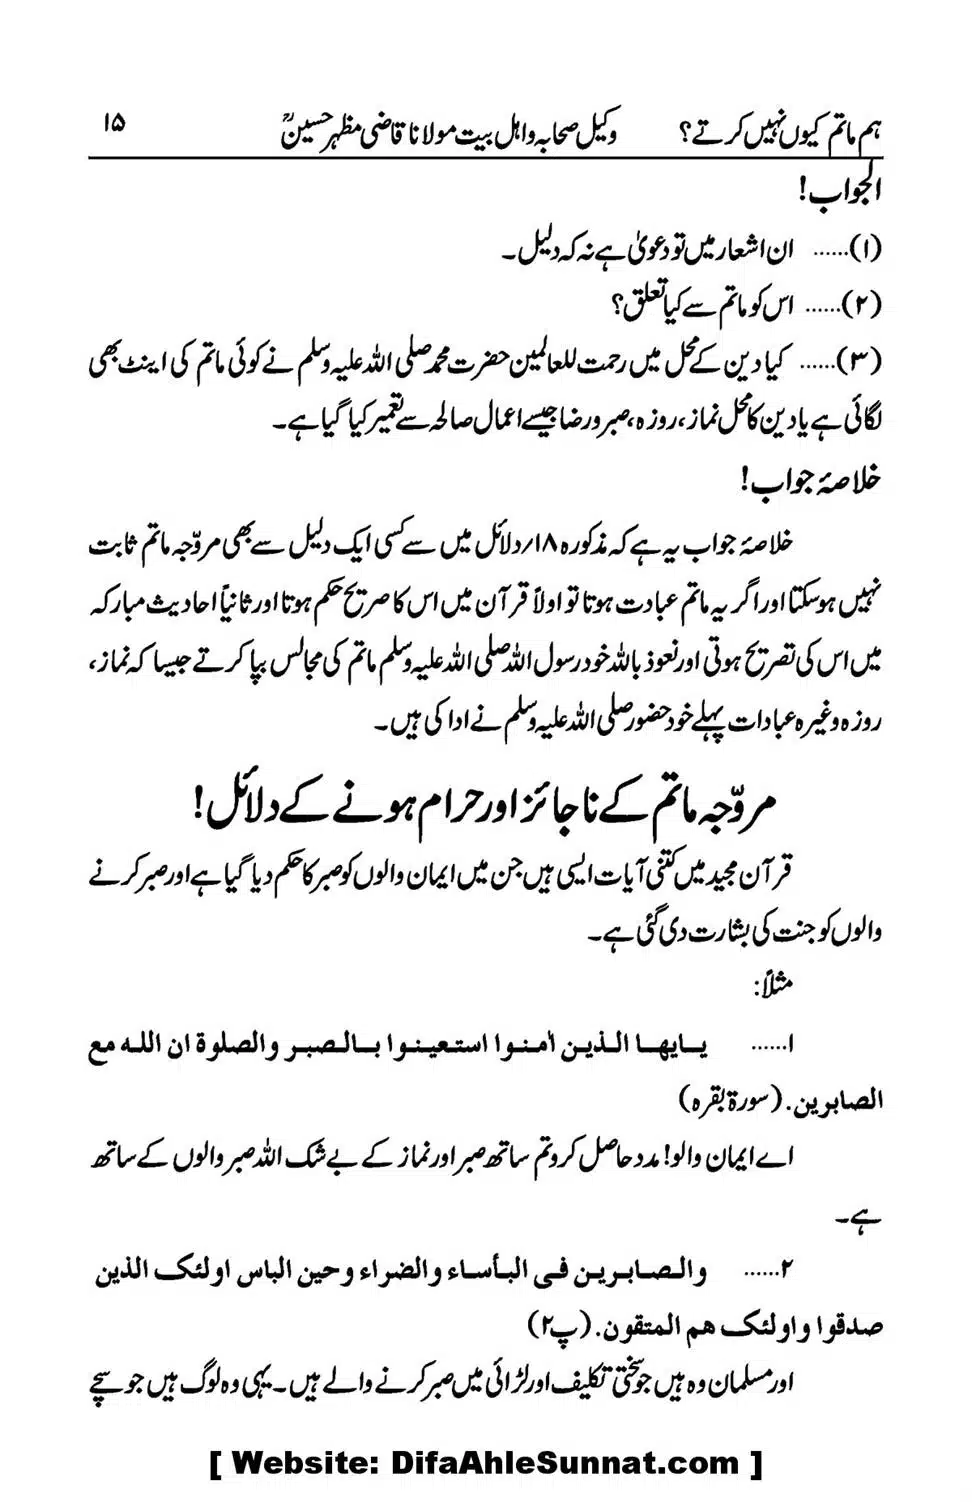 ہم ماتم کیوں نہیں کرتے؟ وکیل صحابہ و اہل بیت مولانا قاضی مظہر حسینؒ ۱۵
الجواب!
(۱)...... ان اشعار میں تو دعویٰ ہے نہ کہ دلیل۔
(۲)...... اس کو ماتم سے کیا تعلق؟
(۳)...... کیا دین کے محل میں رحمت للعالمین حضرت محمد صلی اللہ علیہ وسلم نے کوئی ماتم کی اینٹ بھی
لگائی ہے یا دین کا محل نماز، روزہ، صبر ورضا جیسے اعمال صالحہ سے تعمیر کیا گیا ہے۔
خلاصۂ جواب!
خلاصۂ جواب یہ ہے کہ مذکورہ ۱۸/دلائل میں سے کسی ایک دلیل سے بھی مروّجہ ماتم ثابت
نہیں ہو سکتا اور اگر یہ ماتم عبادت ہوتا تو اولاً قرآن میں اس کا صریح حکم ہوتا اور ثانیاً احادیث مبارکہ
میں اس کی تصریح ہوتی اور نعوذ باللہ خود رسول اللہ صلی اللہ علیہ وسلم ماتم کی مجالس بپا کرتے جیسا کہ نماز،
روزہ وغیرہ عبادات پہلے خود حضور صلی اللہ علیہ وسلم نے ادا کی ہیں۔
مروّجہ ماتم کے ناجائز اور حرام ہونے کے دلائل!
قرآن مجید میں کتنی آیات ایسی ہیں جن میں ایمان والوں کو صبر کا حکم دیا گیا ہے اور صبر کرنے
والوں کو جنت کی بشارت دی گئی ہے۔
مثلاً:
۱...... یـایھـا الـذیـن اٰمـنـوا استـعیـنـوا بـالـصبـر والصلوة ان اللـه مع
الصابرین. (سورۃ بقرہ)
اے ایمان والو! مدد حاصل کرو تم ساتھ صبر اور نماز کے بے شک اللہ صبر والوں کے ساتھ
ہے۔
۲...... والـصـابـریـن فـی البـأسـاء والضراء وحین الباس اولئک الذین
صدقوا واولئک ھم المتقون. (پ۲)
اور مسلمان وہ ہیں جو سختی تکلیف اور لڑائی میں صبر کرنے والے ہیں۔ یہی وہ لوگ ہیں جو سچے
[ Website: DifaAhleSunnat.com ]